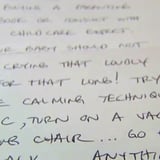 BUYING A PARENTING
BOOK OR CONSULT WITH
CHILD CARE EXPERT.
BABY SHOULD NOT
CRYING THAT LOUDLY
FOR THAT LONG! TRY
E CALMING TECHNIQUE
C, TURN ON A VAC
CHAIR... GO
ANYTH